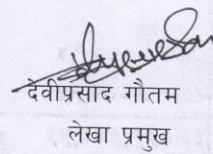 देवीप्रसाद गौतम
लेखा प्रमुख